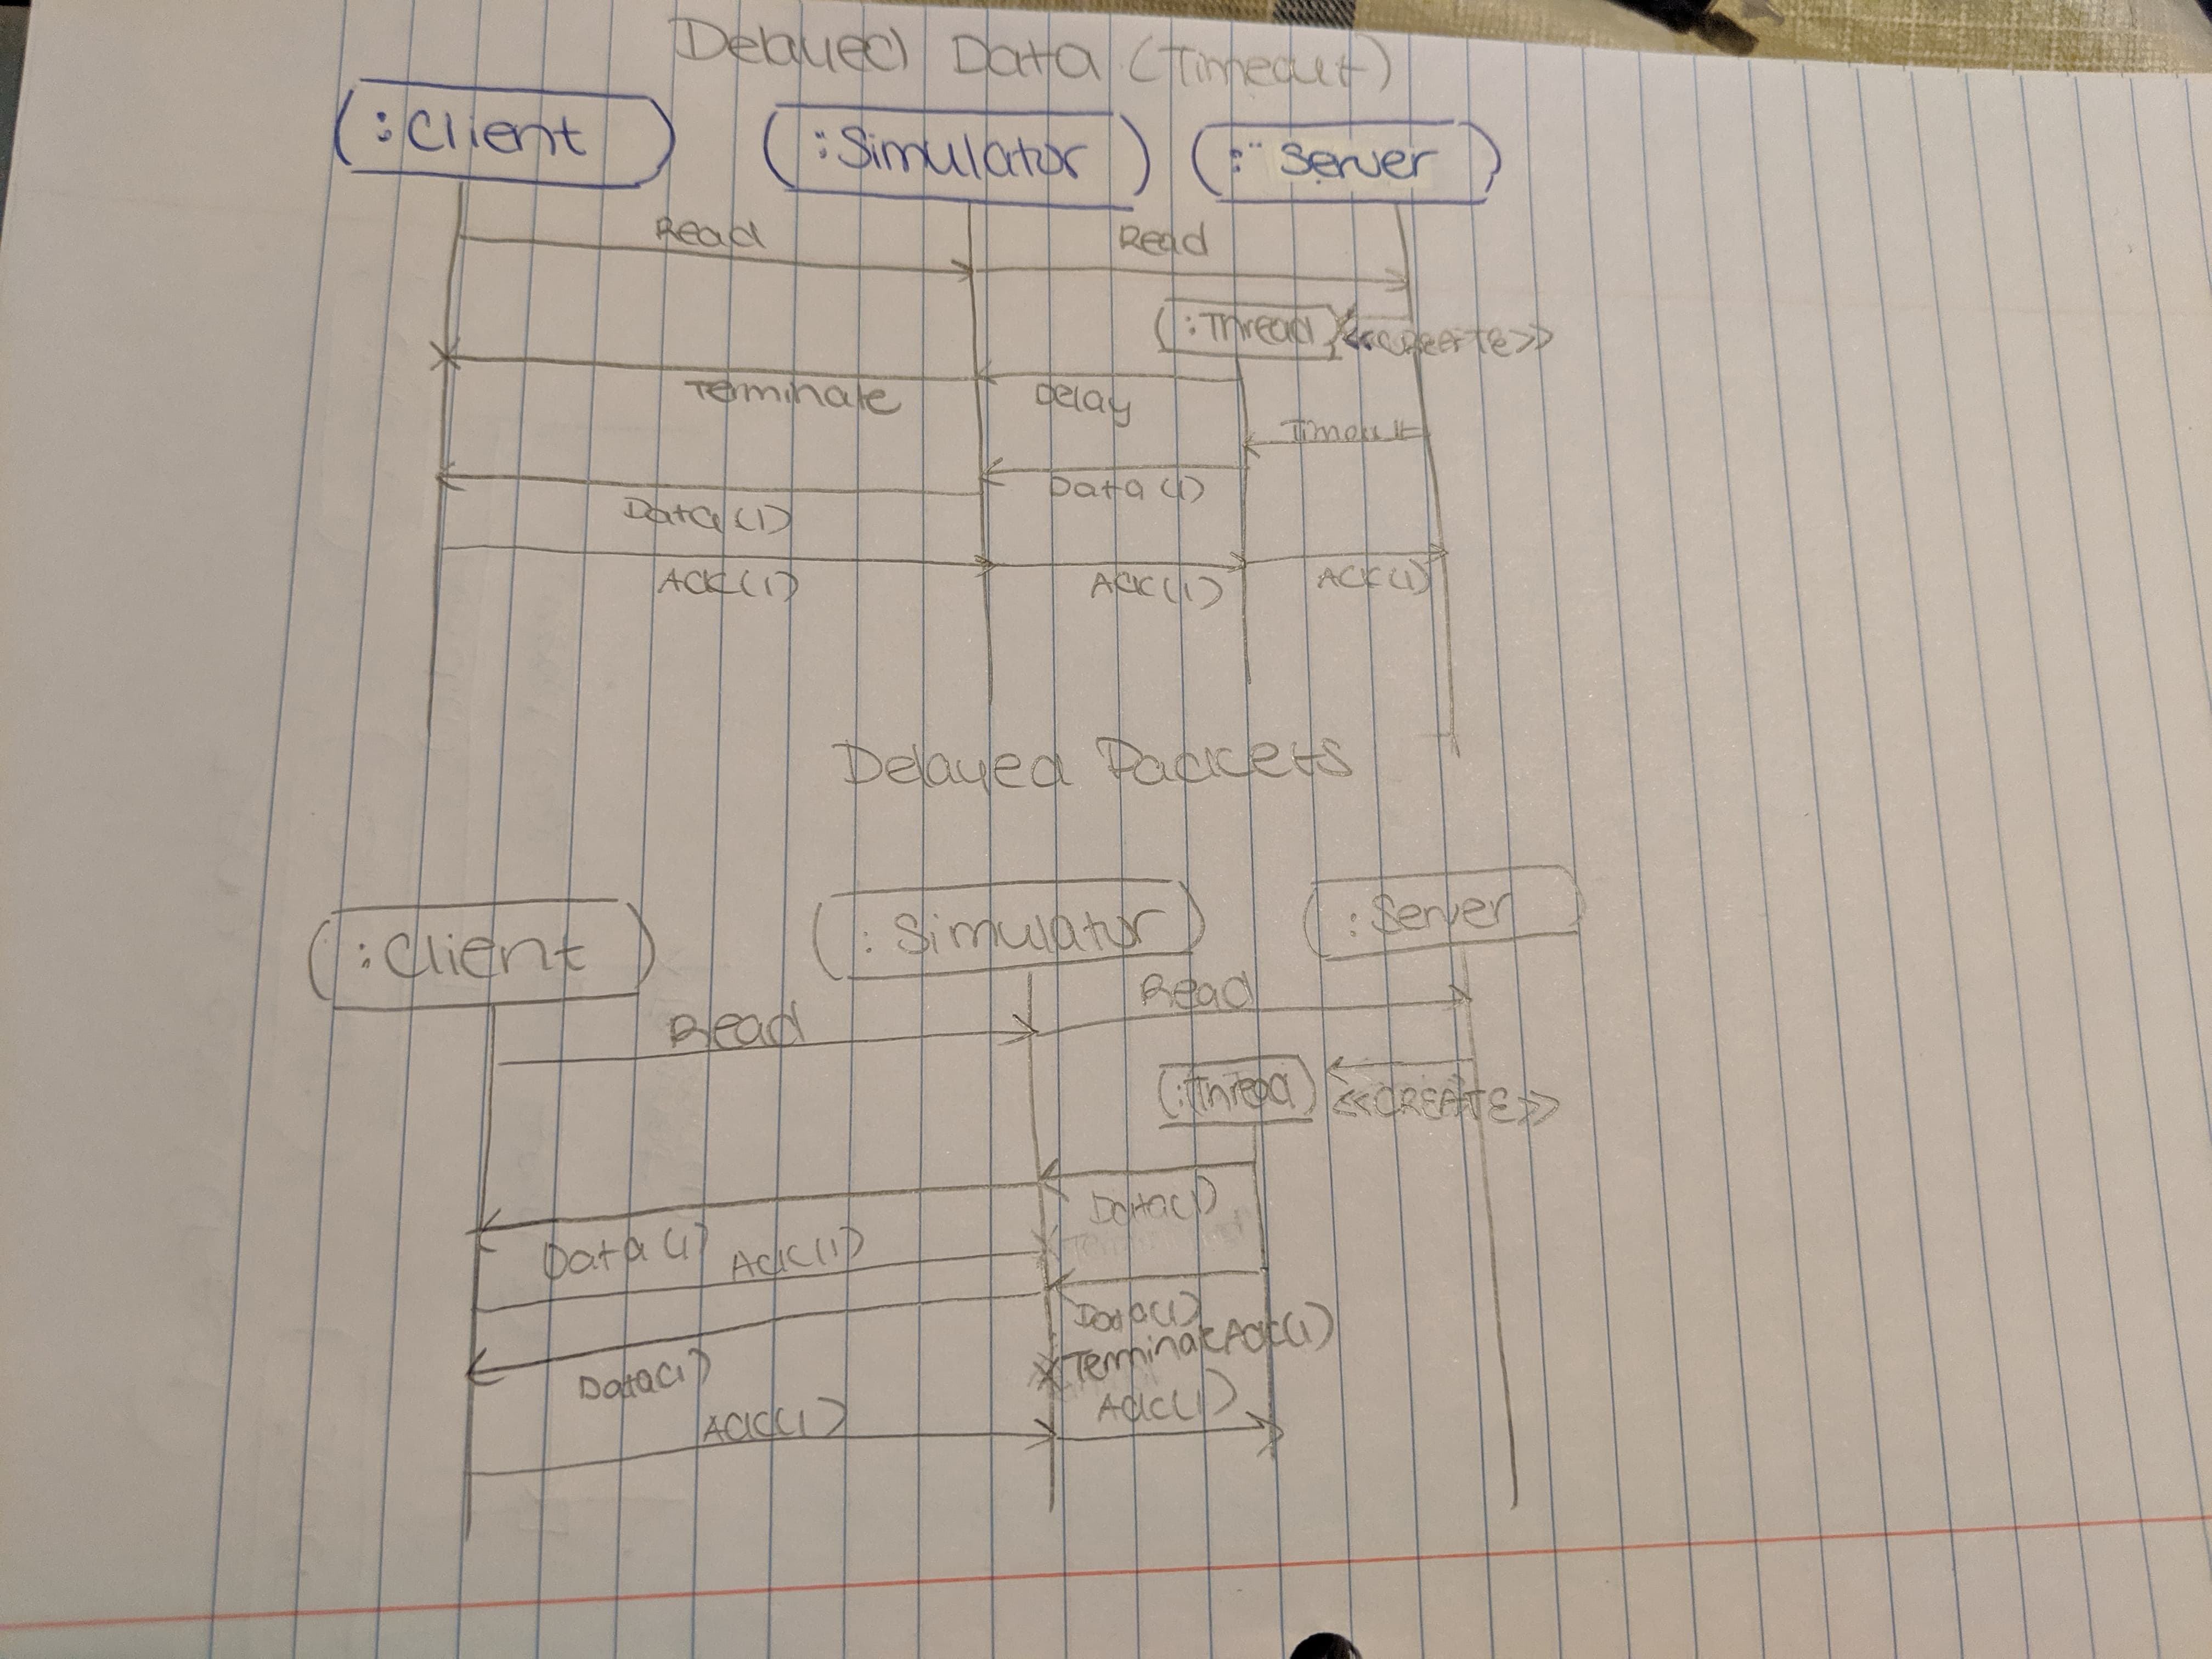 Delayed Data (Timeout)
:Client :Simulator : Server
Read Read
:Thread <<CREATE>>
Terminate Delay
Timout
Data (1) Data (1)
ACK(1) ACK(1) ACK(1)
Delayed Packets
:Client :Simulator :Server
Read Read
:Thread <<CREATE>>
Data(1)
Data (1) ACK(1)
Data(1)
Terminate ACK(1)
Data(1)
ACK(1) ACK(1)